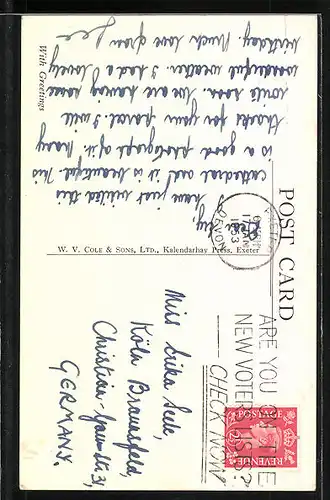 With Greetings
have just visited this
cathedral and it is beautiful. This
is a good photograph of it. Many
thanks for your parcel. I will
write soon. We are having some
wonderful weather. I had a lovely
birthday. Much love from
POST CARD
W. V. COLE & SONS, LTD., Kalendarhay Press, Exeter
EXETER
DEVON
ARE YOU ON THE
NEW VOTERS
CHECK NOW
POSTAGE
REVENUE
Miss Erika
Köln Braunsfeld,
Christian
GERMANY.